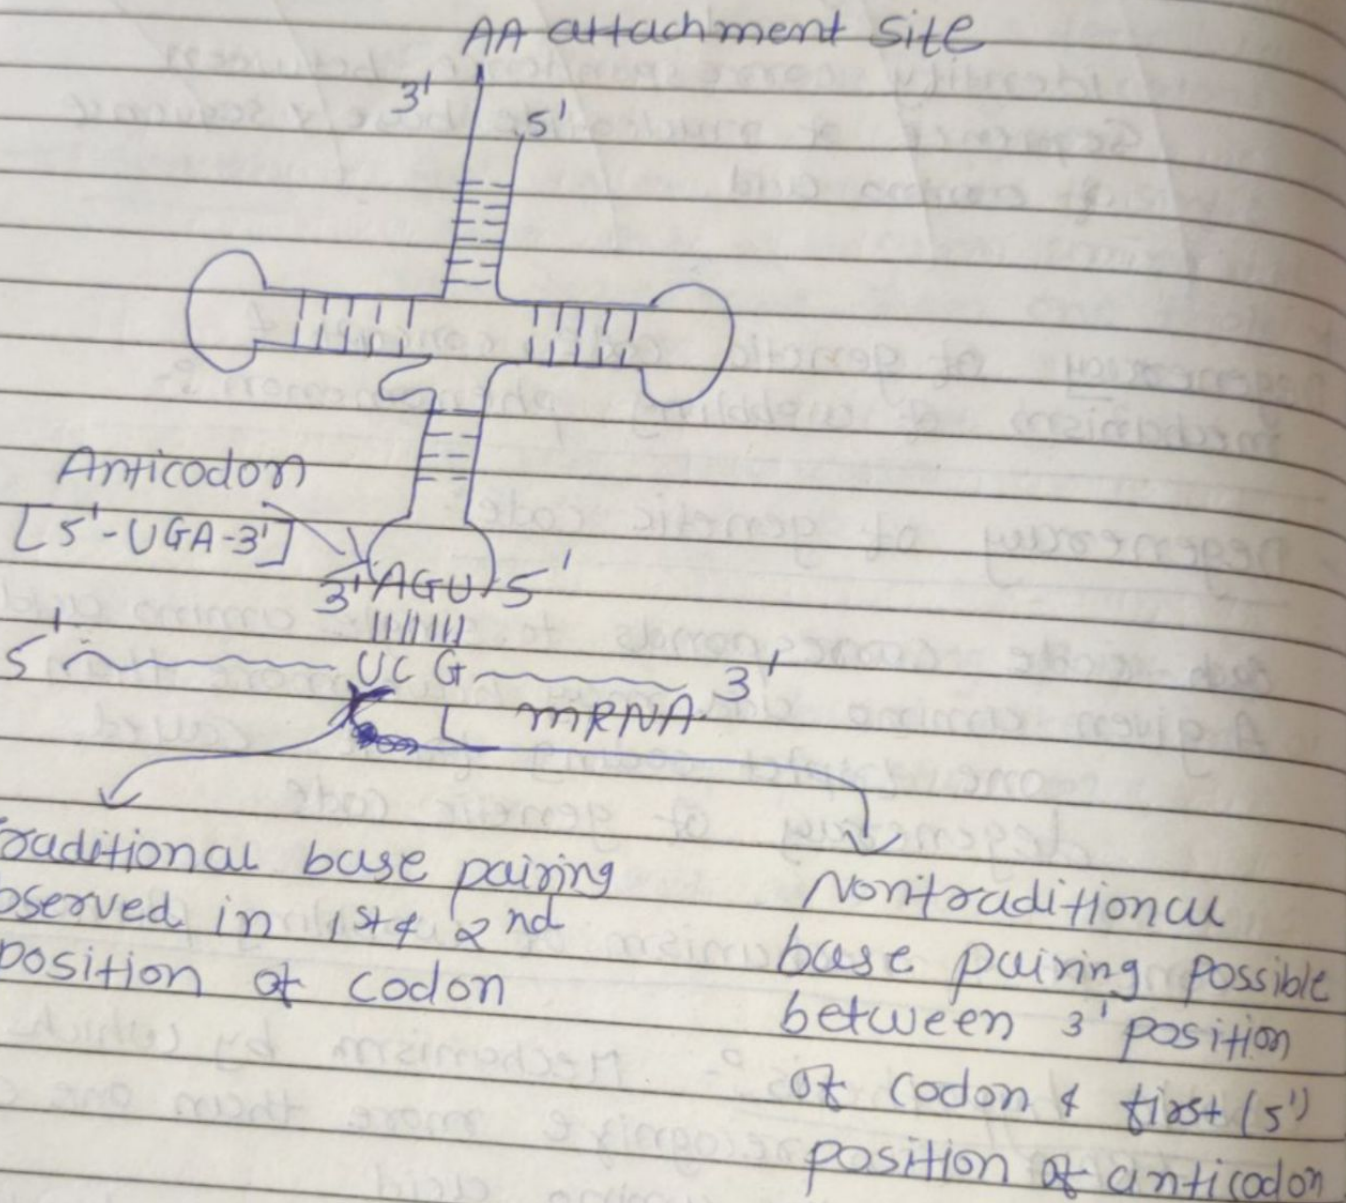 AA attachment site
3'
5'
Anticodon
[5'-UGA-3']
3' AGU 5'
5' UCG 3'
mRNA
raditional base pairing
bserved in 1st & 2nd
position of codon
Nontraditional
base pairing possible
between 3' position
of codon & first (5')
position of anticodon